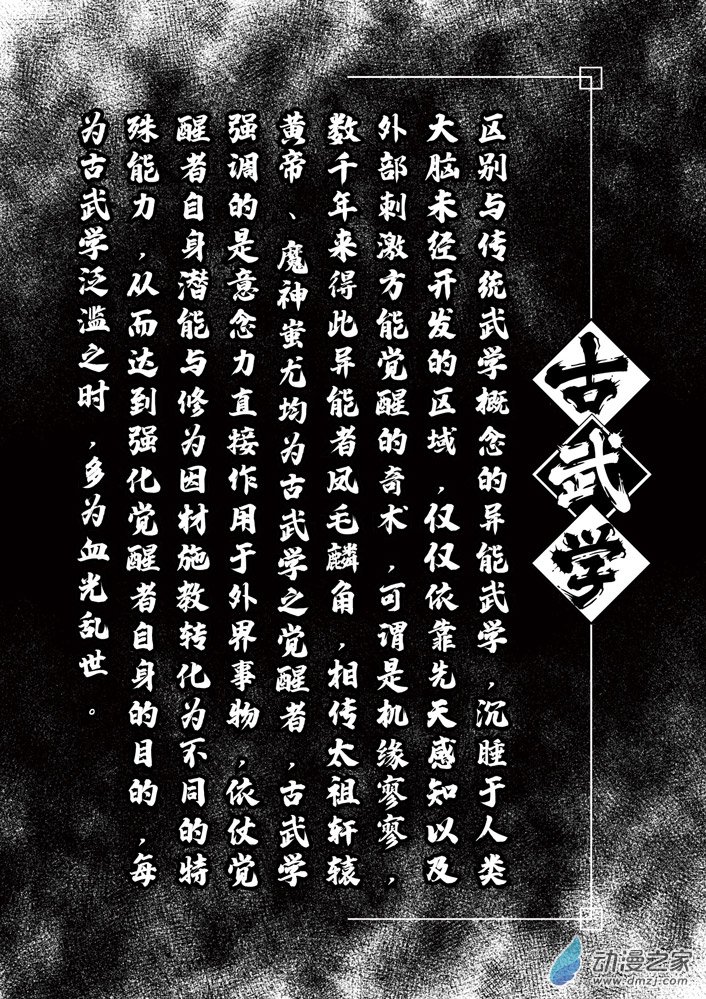 古武学
区别与传统武学概念的异能武学，沉睡于人类
大脑未经开发的区域，仅仅依靠先天感知以及
外部刺激方能觉醒的奇术，可谓是机缘寥寥，
数千年来得此异能者凤毛麟角，相传太祖轩辕
黄帝、魔神蚩尤均为古武学之觉醒者，古武学
强调的是意念力直接作用于外界事物，依仗觉
醒者自身潜能与修为因材施教转化为不同的特
殊能力，从而达到强化觉醒者自身的目的，每
为古武学泛滥之时，多为血光乱世。
动漫之家
www.dmzj.com